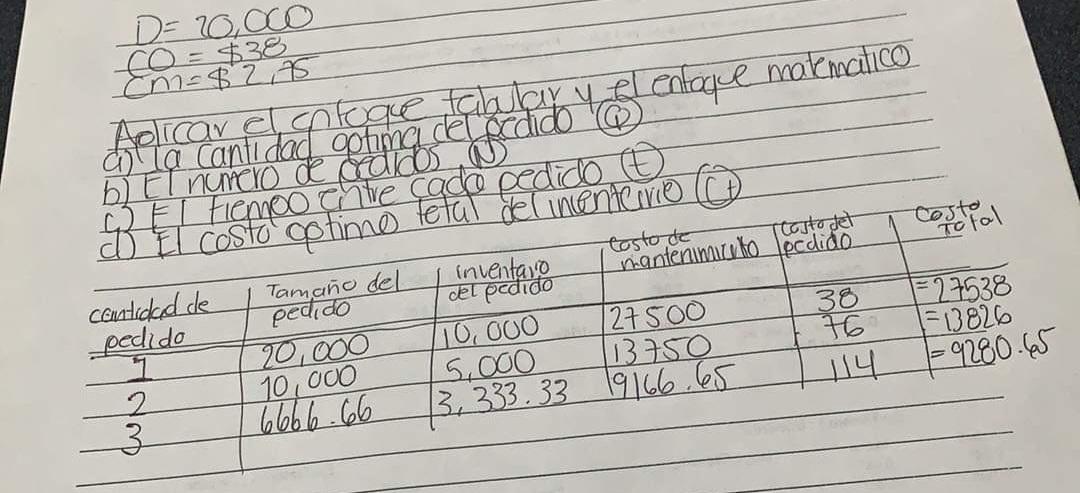 D= 20,000
CO = $38
Cm = $ 2,75
Aplicar el enfoque tabular y el enfoque matematico
a) la cantidad optima del pedido (Q)
b) El numero de pedidos (N)
c) El tiempo entre cada pedido (t)
d) El costo optimo total del inventario (Ct)
cantidad de pedido | Tamaño del pedido | inventario del pedido | costo de mantenimiento | costo del pedido | Costo Total
1 | 20,000 | 10,000 | 27500 | 38 | =27538
2 | 10,000 | 5,000 | 13750 | 76 | =13826
3 | 6666.66 | 3,333.33 | 9166.65 | 114 | =9280.65